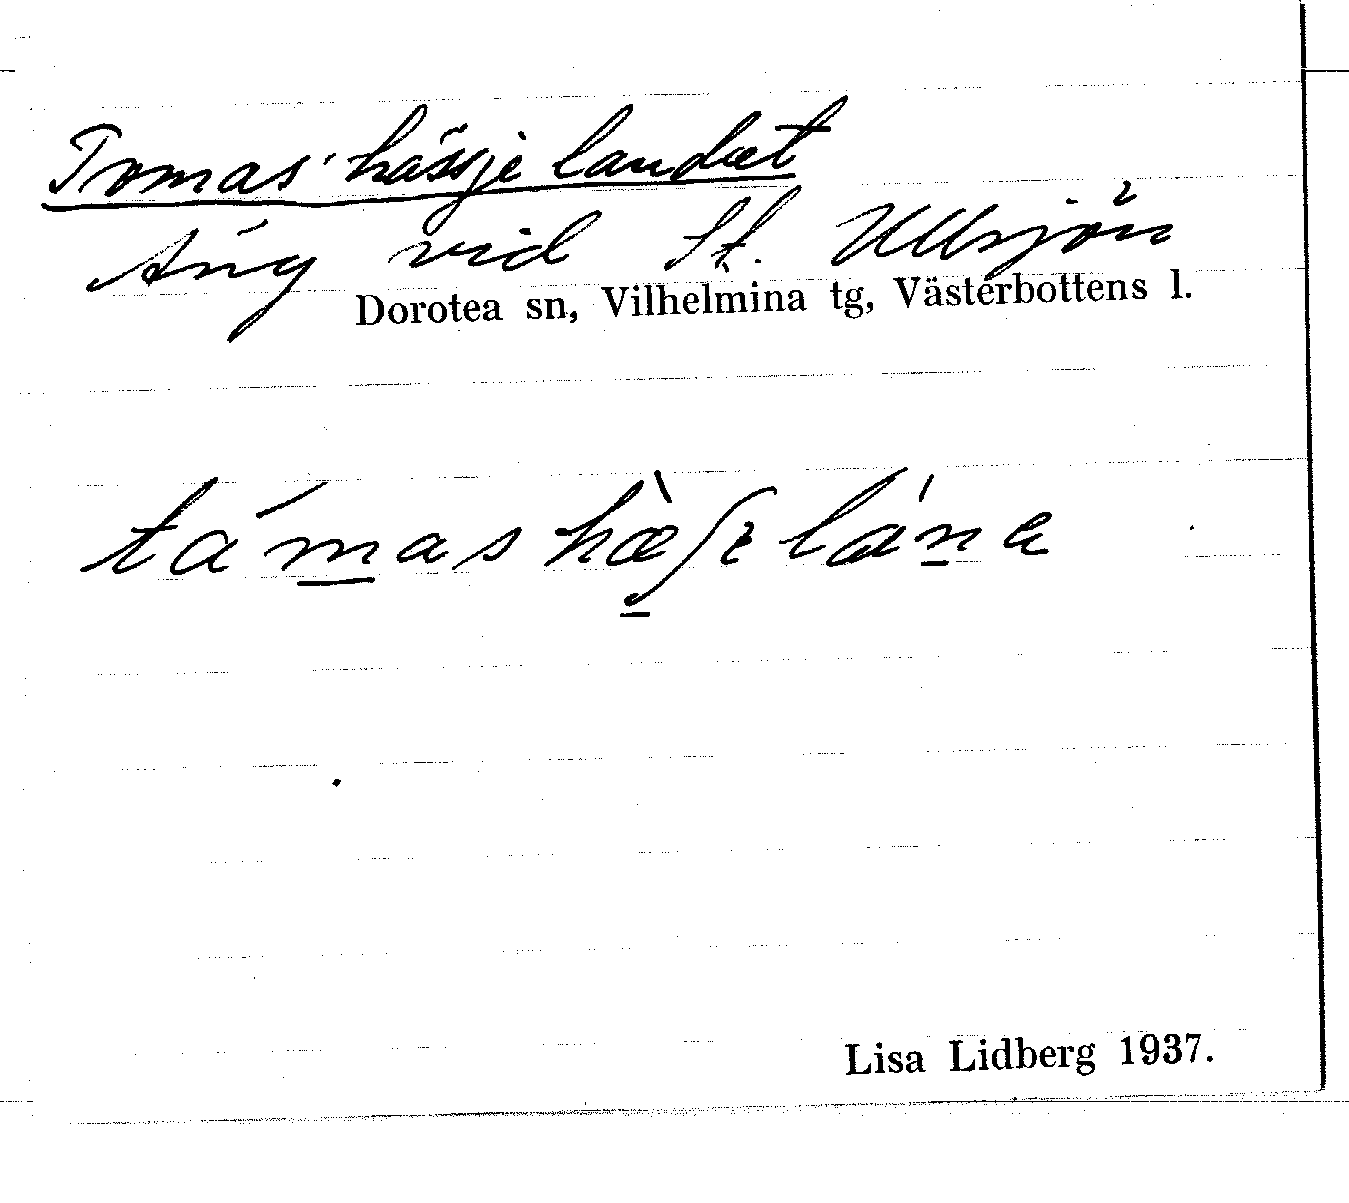 Tomas'hässjelandet
Äng vid St. Ullsjön
Dorotea sn, Vilhelmina tg, Västerbottens l.
támashæ̀ʃelána
Lisa Lidberg 1937.